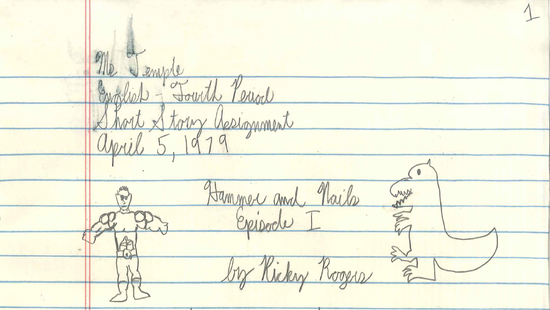 1
Mr Temple
English - Fourth Period
Short Story Assignment
April 5, 1979
Hammer and Nails
Episode I
by Ricky Rogers